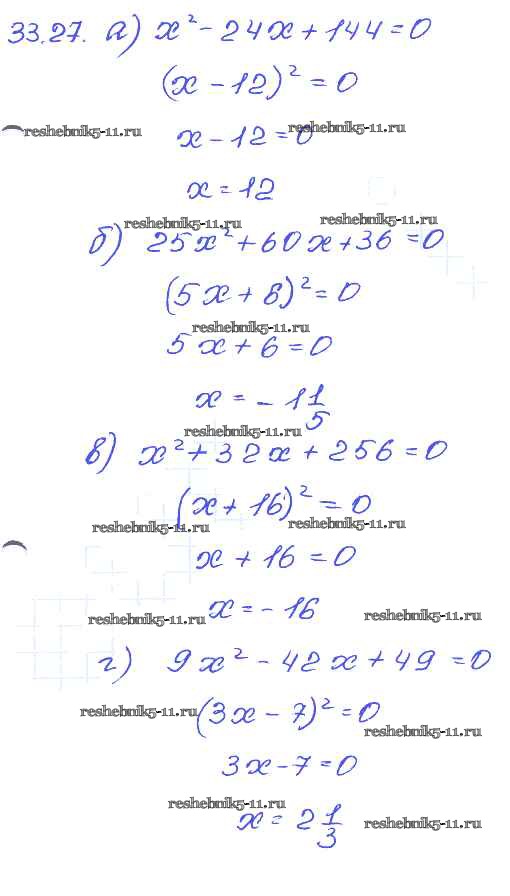 33.27. а) x² - 24x + 144 = 0
(x - 12)² = 0
reshebnik5-11.ru
x - 12 = 0
reshebnik5-11.ru
x = 12
reshebnik5-11.ru
reshebnik5-11.ru
б) 25x² + 60x + 36 = 0
(5x + 6)² = 0
reshebnik5-11.ru
5x + 6 = 0
x = - 1 1/5
reshebnik5-11.ru
в) x² + 32x + 256 = 0
(x + 16)² = 0
reshebnik5-11.ru
reshebnik5-11.ru
x + 16 = 0
reshebnik5-11.ru
x = - 16
reshebnik5-11.ru
г) 9x² - 42x + 49 = 0
reshebnik5-11.ru
(3x - 7)² = 0
reshebnik5-11.ru
3x - 7 = 0
reshebnik5-11.ru
x = 2 1/3
reshebnik5-11.ru